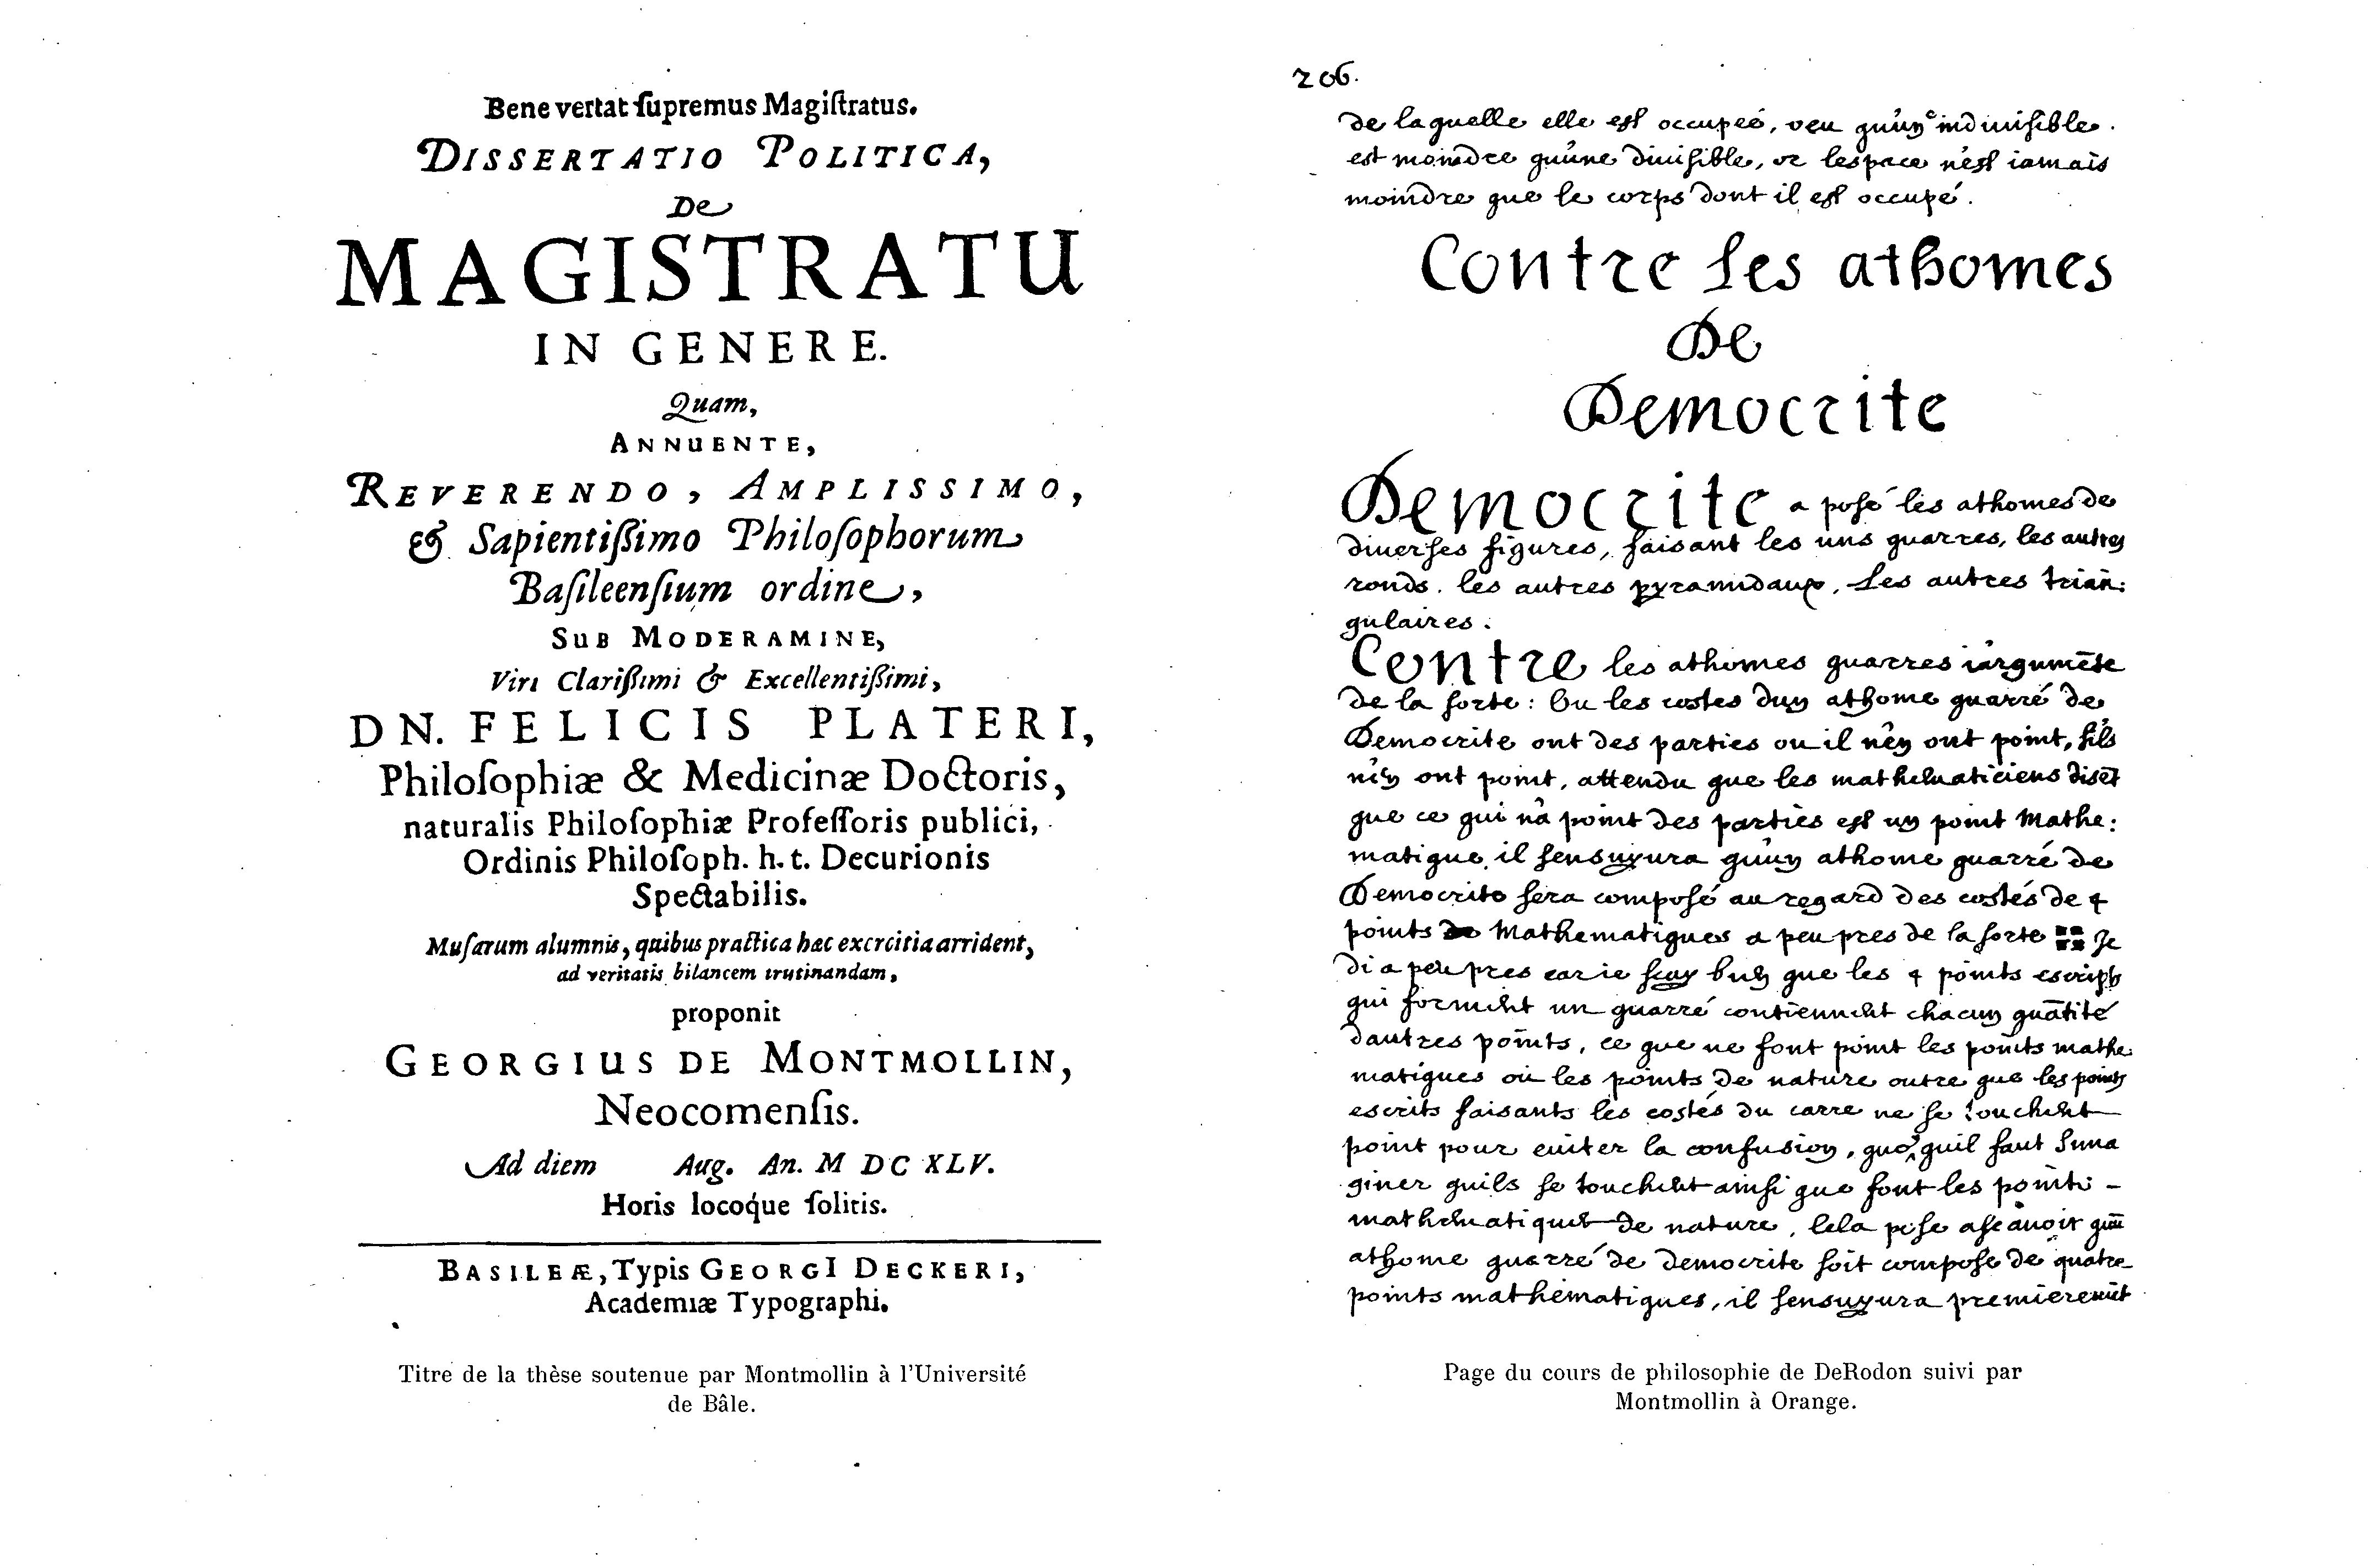 Bene vertat ſupremus Magiſtratus.
DISSERTATIO POLITICA,
De
MAGISTRATU
IN GENERE.
Quam,
ANNUENTE,
REVERENDO, AMPLISSIMO,
& Sapientiſſimo Philoſophorum
Baſileenſium ordine,
SUB MODERAMINE,
Viri Clariſſimi & Excellentiſſimi,
DN. FELICIS PLATERI,
Philoſophiæ & Medicinæ Doctoris,
naturalis Philoſophiæ Profeſſoris publici,
Ordinis Philoſoph. h. t. Decurionis
Spectabilis.
Muſarum alumnis, quibus practica hæc exercitia arrident,
ad veritatis bilancem trutinandam,
proponit
GEORGIUS DE MONTMOLLIN,
Neocomenſis.
Ad diem Aug. An. M DC XLV.
Horis locoque ſolitis.
BASILEÆ, Typis GEORGI DECKERI,
Academiæ Typographi.
Titre de la thèse soutenue par Montmollin à l'Université
de Bâle.
206.
de laquelle elle est occupeé, veu qu'un indiuisible.
est moindre qu'une diuisible, or lespace n'est iamais
moindre que le corps dont il est occupé.
Contre les athomes
De
Democrite
Democrite a posé les athomes de
diuerses figures, faisant les uns quarres, les autres
ronds. les autres pyramidaux, Les autres trian:
gulaires.
Contre les athomes quarres i'argumēte
de la sorte: Ou les costes dun athome quarré de
Democrite ont des parties ou il n'en ont point, s'ils
n'en ont point, attendu que les mathematiciens disēt
que ce qui n'a point des parties est un point Mathe:
matique, il sensuyura qu'un athome quarré de
Democrite sera composé au regard des costés de 4
points Mathematiques a peu pres de la sorte Je
di a peu pres car ie scay bien que les 4 points escripts
qui forment un quarré contiennent chacun quātité
dautres points, ce que ne font point les points mathe
matiques ou les points de nature outre que les points
escrits faisants les costés du carre ne se touchent
point pour euiter la confusion, quoy quil faut Ima
giner quils se touchent ainsi que font les points
mathematiques de nature, Cela posé ascauoir quū
athome quarré de democrite soit compose de quatre
points mathematiques, il sensuyura premieremēt
Page du cours de philosophie de DeRodon suivi par
Montmollin à Orange.